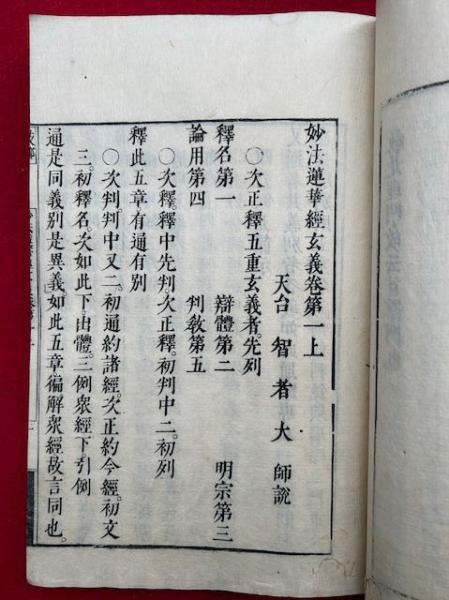 妙法蓮華經玄義卷第一上
天台智者大師説
〇次正釋五重玄義者先列
釋名第一 辯體第二 明宗第三
論用第四 判教第五
〇次釋。釋中先判次正釋。初判中二。初列
釋此五章有通有別
〇次判。判中又二。初通約諸經。次正約今經。初文
三。初釋名。次如此下由體。三例衆經下引例
通是同義別是異義如此五章徧解衆經故言同也。